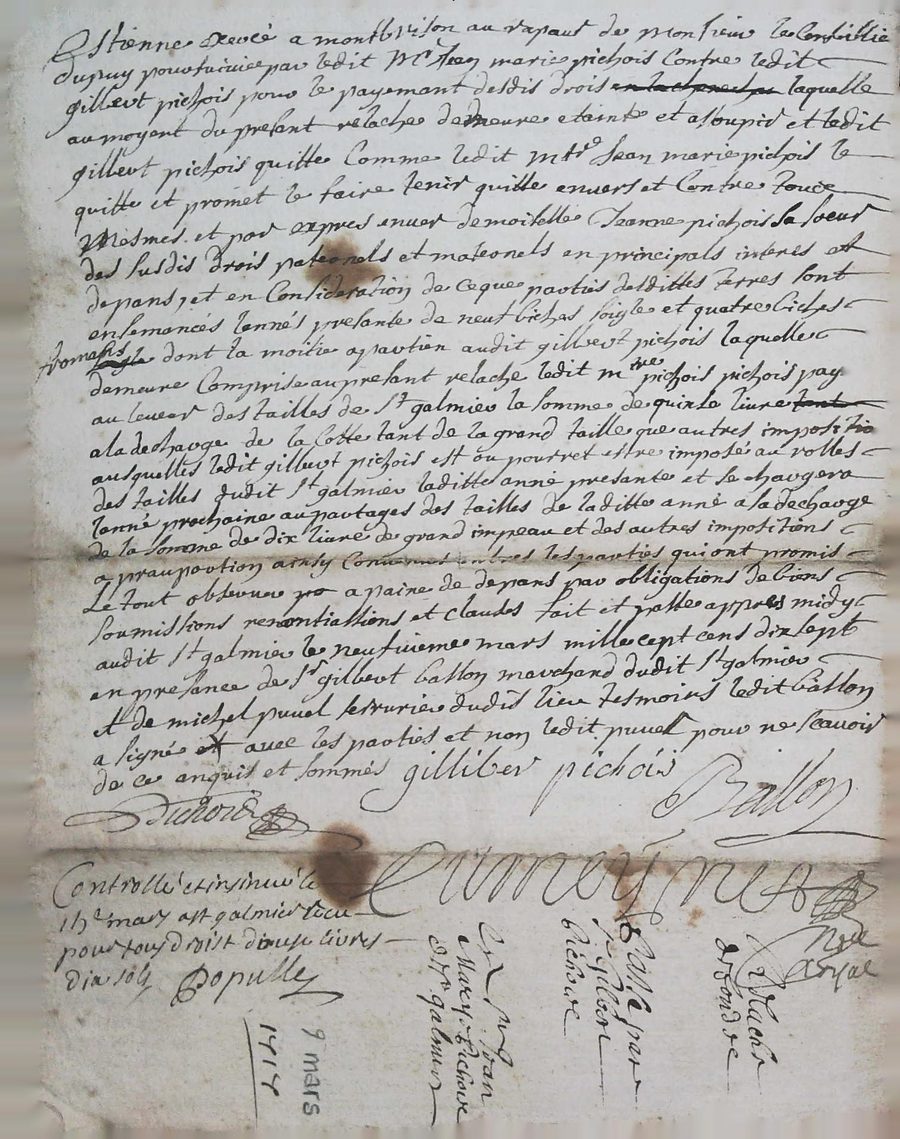 Estienne exercé a montbrison au raport de Monsieur le Conseillie
dupuy poursuivie par ledit Mre Jean marie pichois Contre ledit
gilbert pichois pour le payemant desdis drois laquelle
au moyent du presant relache demeure etainte et asoupie et ledit
gilbert pichois quitte Comme ledit mtre Jean marie pichois le
quitte et promet le faire tenir quitte envers et Contre tous
Mesmes et par expres enver demoiselle Jeanne pichois sa soeur
des susdis drois paternels et maternels en principals interes et
depans, et en Consideration de ceque parties desdittes terres sont
ensemancés lannés presante de neuf biches soigle et quatre biches
fromans dont la moitie apartien audit gilbert pichois laquelle
demeure Comprise au presant relache ledit mtre pichois pichois pay
au leveur des tailles de St galmier la somme de quinse livre
a la decharge de la Cotte tant de la grand taille que autres impositio
ausquelles ledit gilbert pichois est ou pourret estre imposé au rolles
des tailles dudit St galmier laditte anne presante et se chargera
lanné prochaine au partages des tailles de laditte anné a la decharge
de la somme de dix livre de grand impeau et des autres impositions
a prauportion ainsy Convenus entres les parties qui ont promis
Le tout observer a paine de depans par obligations de biens
soumissions renontiassions et clauses fait et passe appres midy
audit St galmier le neufvieme mars mille sept cens dix sept
en presance de Sr gilbert ballon marchand dudit St galmier
et de michel puvel serrurie dudis lieu tesmoins ledit ballon
a signé avec les parties et non ledit puvel pour ne scavoir
de ce enquis et sommés gilliber pichois
Ballon
Pichois
Controllé et insinué le
mars a St galmier recu
pour tous droist livres
dix sols Populle
Nre
Royal
Relache
Passé par
Sr Gilbert
Pichois
Jean
Marey Pichois
de St galmier
9 mars
1717